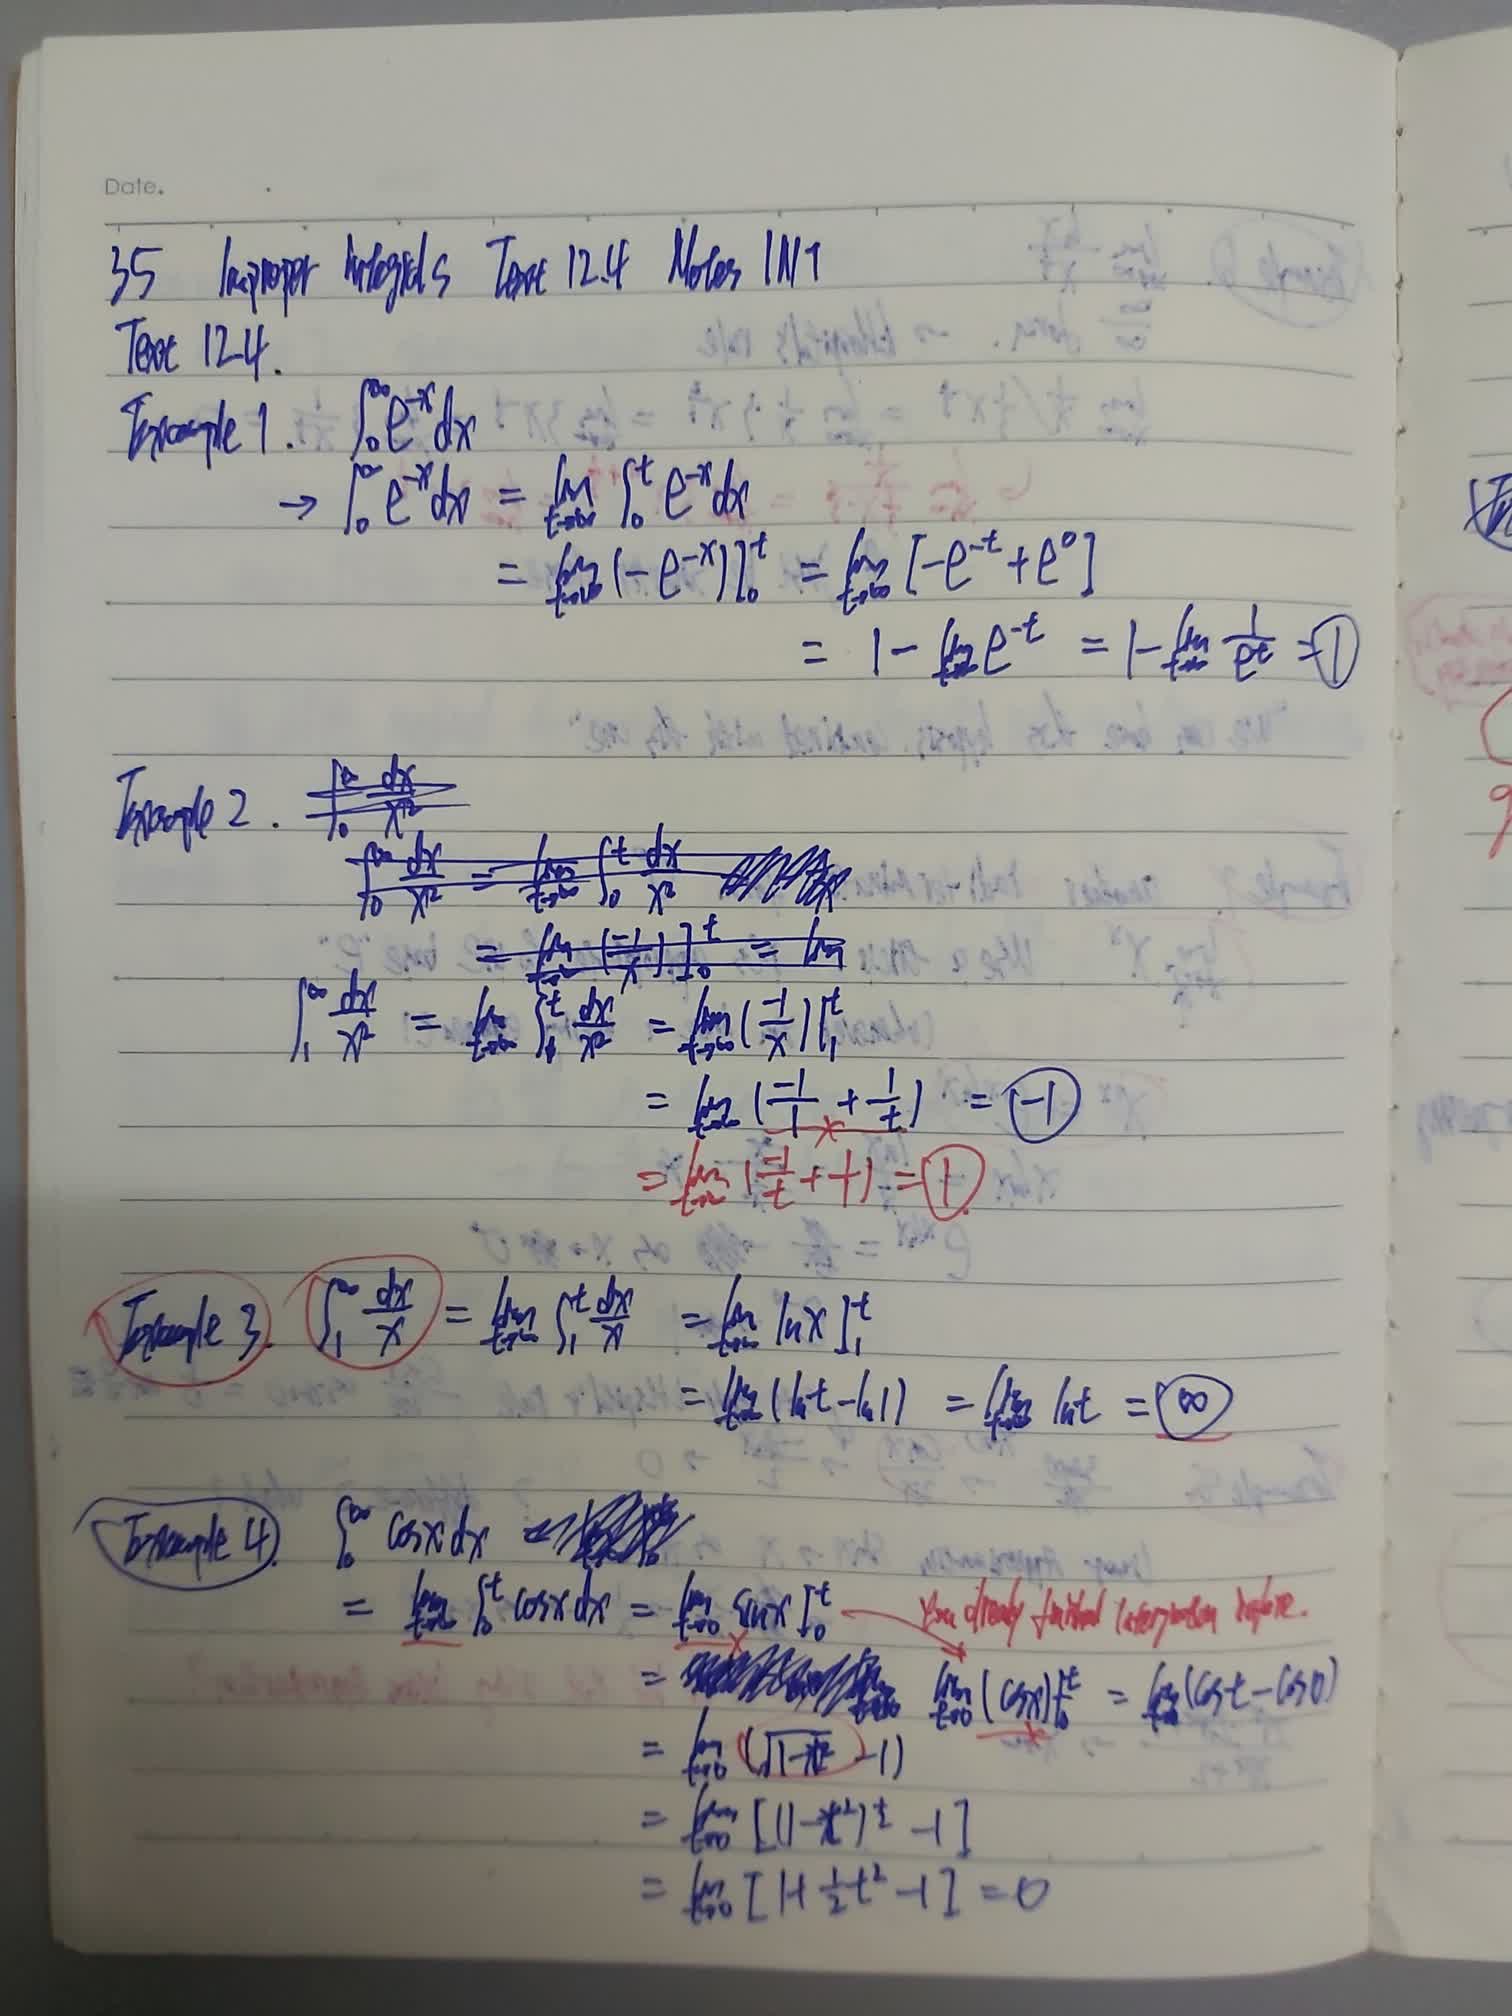 Date.
35 Improper Integrals Text 12.4 Notes INT
Text 12.4.
Example 1. ∫₀^∞ e^{-x} dx
→ ∫₀^∞ e^{-x} dx = lim_{t→∞} ∫₀^t e^{-x} dx
= lim_{t→∞} (-e^{-x}) ]₀^t = lim_{t→∞} [-e^{-t} + e^0]
= 1 - lim_{t→∞} e^{-t} = 1 - lim_{t→∞} 1/e^t = 1
Example 2. ∫₀^∞ dx/x²
∫₀^∞ dx/x² = lim_{t→∞} ∫₀^t dx/x²
= lim_{t→∞} (-1/x) ]₀^t = lim
∫₁^∞ dx/x² = lim_{t→∞} ∫₁^t dx/x² = lim_{t→∞} (-1/x) |₁^t
= lim_{t→∞} (-1/1 + 1/t) = -1
= lim_{t→∞} (-1/t + 1) = 1
Example 3. ∫₁^∞ dx/x = lim_{t→∞} ∫₁^t dx/x = lim_{t→∞} ln x ]₁^t
= lim_{t→∞} (ln t - ln 1) = lim_{t→∞} ln t = ∞
Example 4. ∫₀^∞ cos x dx =
= lim_{t→∞} ∫₀^t cos x dx = lim_{t→0} sin x ]₀^t You already finished integration before.
= lim_{t→0} (cos x) ]₀^t = lim_{t→0} (cos t - cos 0)
= lim_{t→0} (√(1-t²) - 1)
= lim_{t→0} [(1-t²)^{1/2} - 1]
= lim_{t→0} [1 + 1/2 t² - 1] = 0